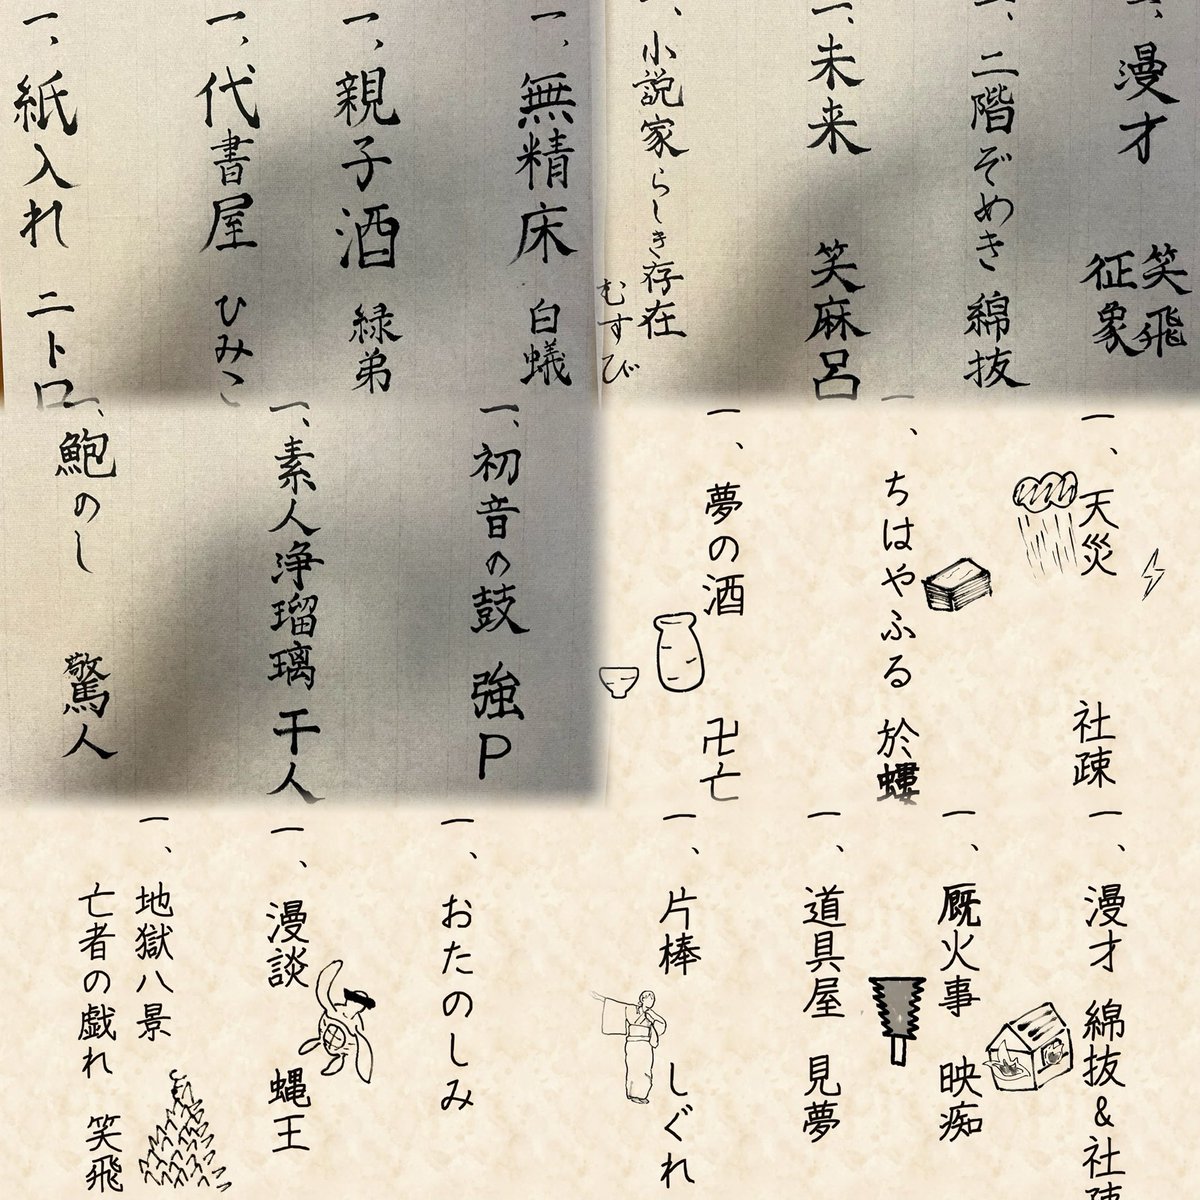 一、無精床 白蟻
一、親子酒 緑弟
一、代書屋 ひみこ
一、紙入れ 二トロ
一、漫才 笑飛 征象
一、二階ぞめき 綿抜
一、未来 笑麻呂
一、小説家らしき存在 むすび
一、初音の鼓 強P
一、素人浄瑠璃 干人
一、鮑のし 驚人
一、天災 社疎
一、ちはやふる 於螻
一、夢の酒 卍亡
一、漫才 綿抜&社疎
一、厩火事 映痴
一、道具屋 見夢
一、片棒 しぐれ
一、おたのしみ
一、漫談 蝿王
一、地獄八景
亡者の戯れ 笑飛